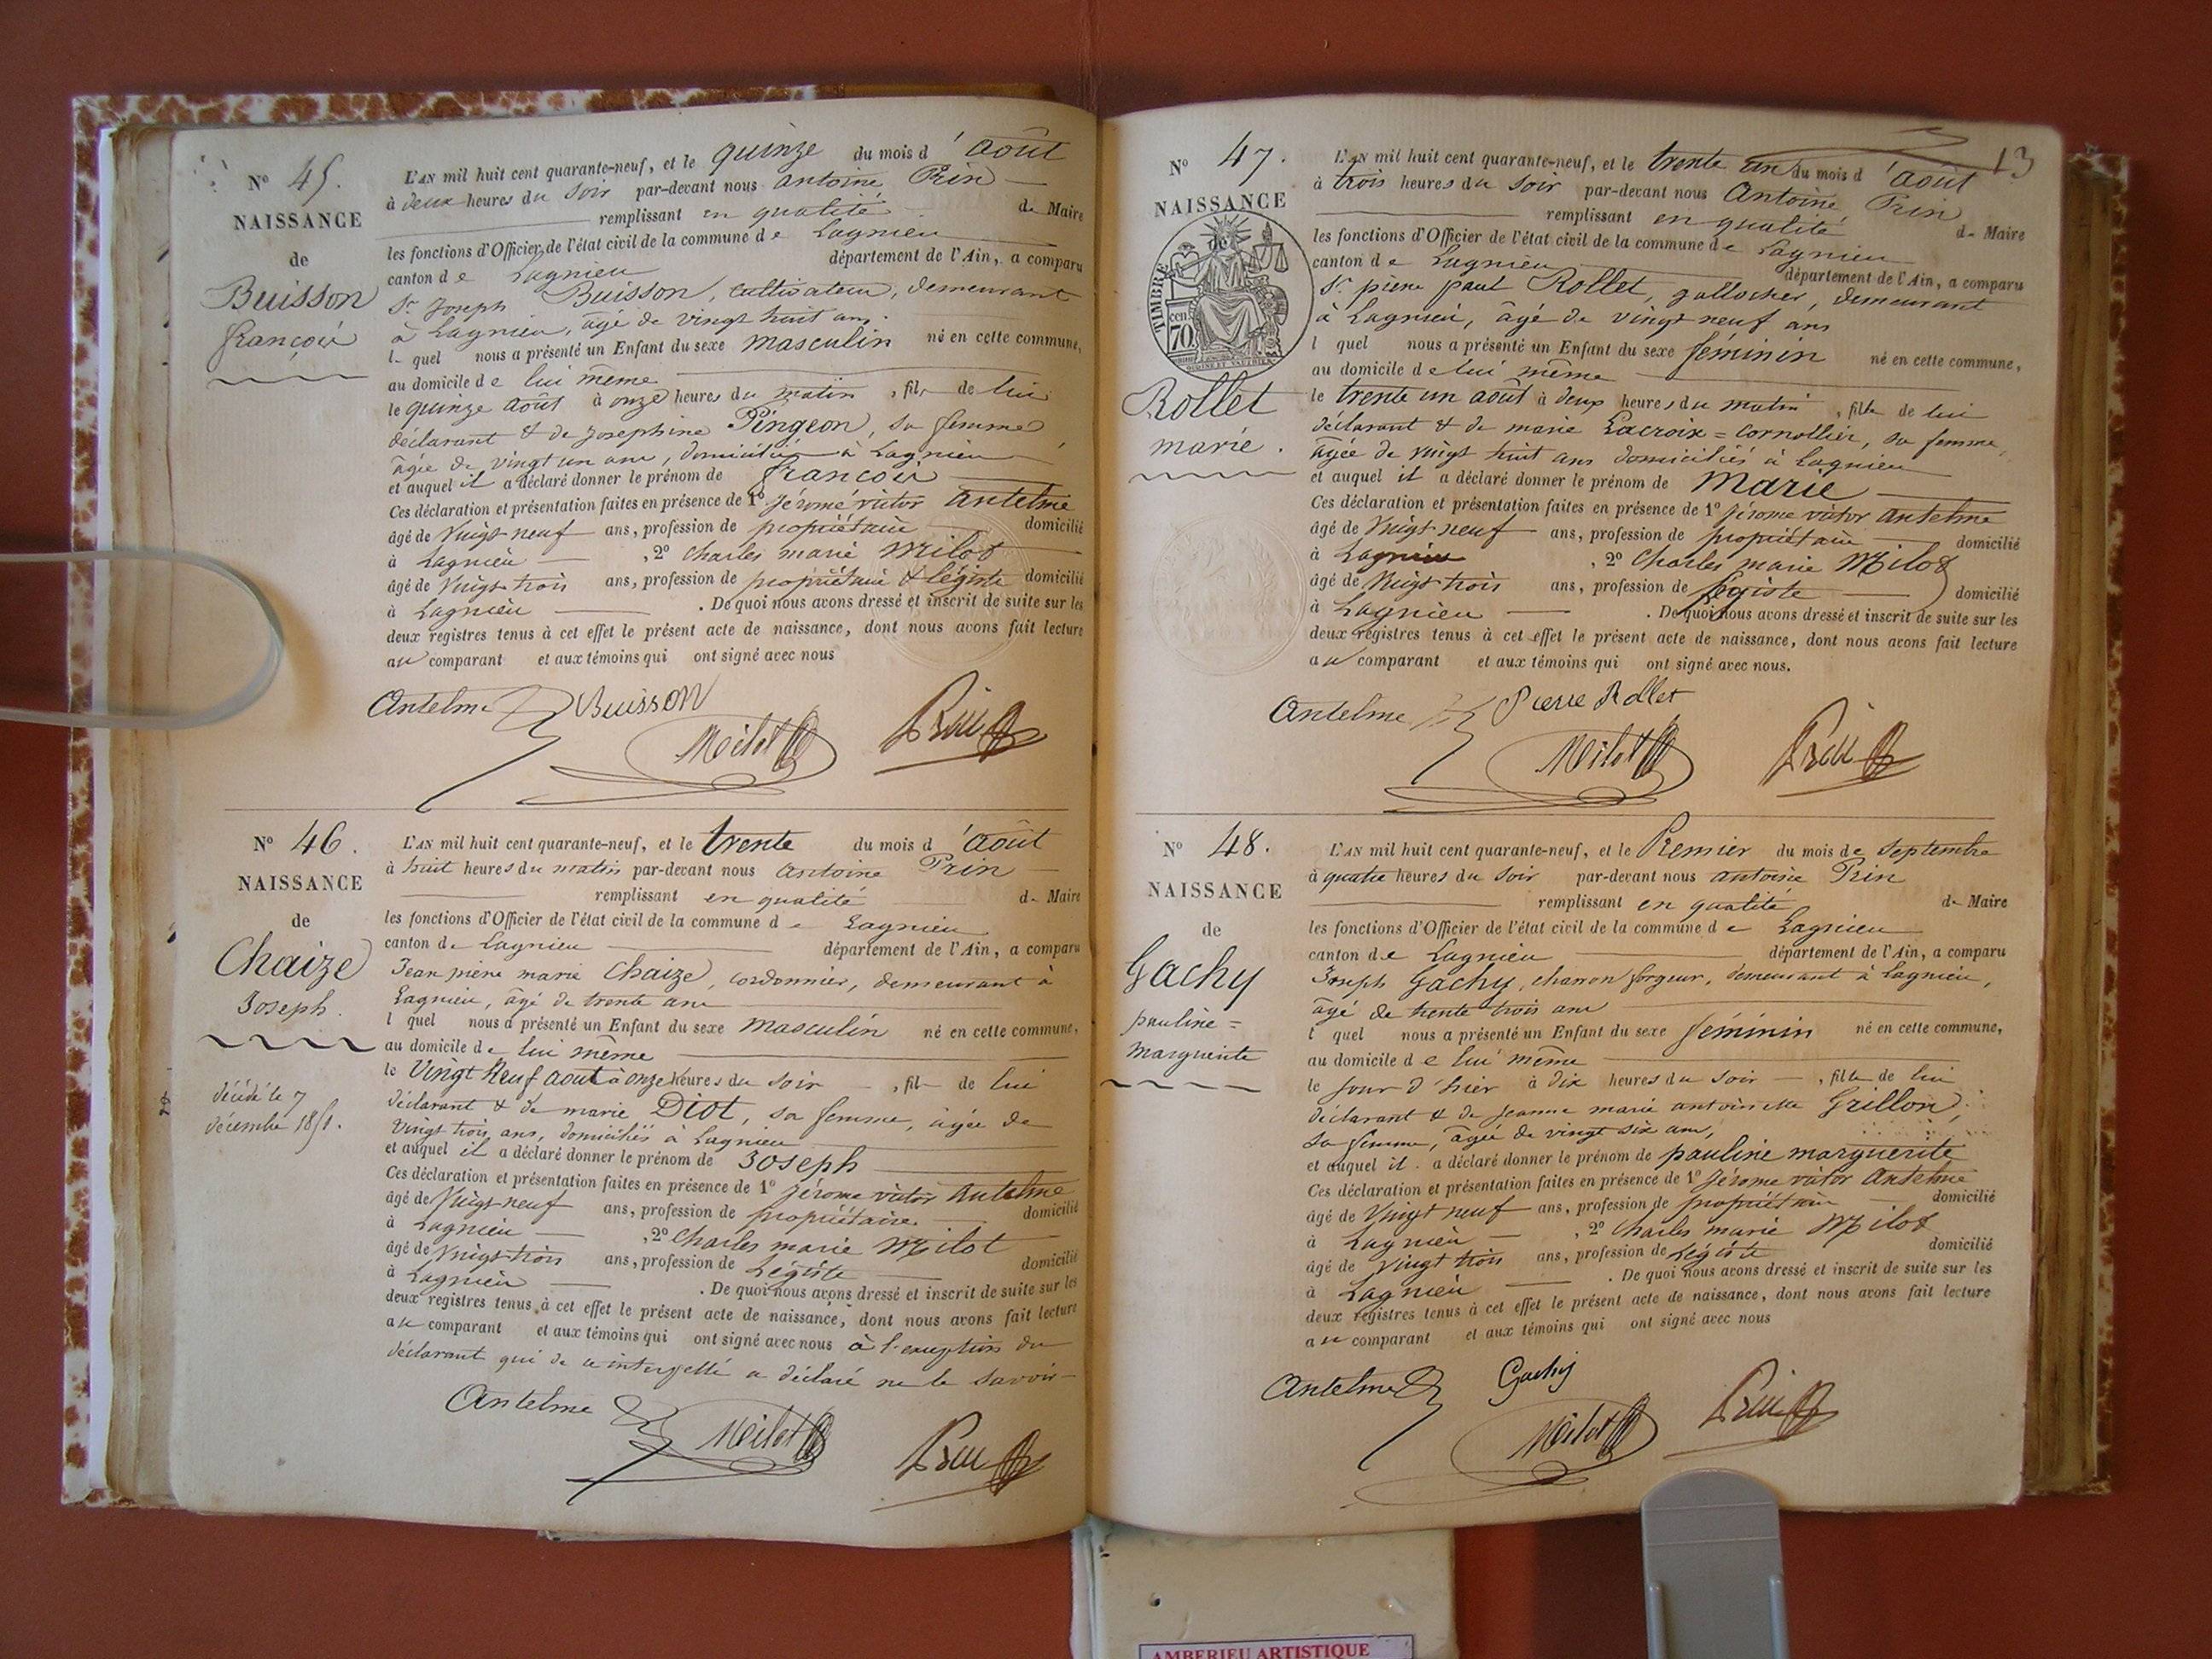 N° 45.
NAISSANCE
de
Buisson
françois
L'AN mil huit cent quarante-neuf, et le quinze du mois d'août
à deux heures du soir par-devant nous antoine Prin
remplissant en qualité de Maire
les fonctions d'Officier de l'état civil de la commune de Lagnieu
canton de Lagnieu département de l'Ain, a comparu
Sr Joseph Buisson, cultivateur, demeurant
à Lagnieu, âgé de vingt huit ans.
lequel nous a présenté un Enfant du sexe masculin né en cette commune,
au domicile de lui même
le quinze août à onze heures du matin, fils de lui
déclarant & de Josephine Pingeon, sa femme,
âgée de vingt un ans, domiciliés à Lagnieu
et auquel il a déclaré donner le prénom de françois
Ces déclaration et présentation faites en présence de 1° Jérome victor Antelme
âgé de vingt-neuf ans, profession de propriétaire domicilié
à Lagnieu , 2° Charles marie Milot
âgé de vingt trois ans, profession de propriétaire & légiste domicilié
à Lagnieu . De quoi nous avons dressé et inscrit de suite sur les
deux registres tenus à cet effet le présent acte de naissance, dont nous avons fait lecture
au comparant et aux témoins qui ont signé avec nous
Antelme Buisson
Milot Prin
N° 46.
NAISSANCE
de
Chaize
Joseph.
décédé le 7
décembre 1851.
L'AN mil huit cent quarante-neuf, et le trente du mois d'août
à huit heures du matin par-devant nous antoine Prin
remplissant en qualité de Maire
les fonctions d'Officier de l'état civil de la commune de Lagnieu
canton de Lagnieu département de l'Ain, a comparu
Jean pierre marie Chaize, cordonnier, demeurant à
Lagnieu, âgé de trente ans
lequel nous a présenté un Enfant du sexe masculin né en cette commune,
au domicile de lui même
le Vingt Neuf aout à onze heures du soir , fils de lui
déclarant & de marie Diot, sa femme, âgée de
vingt trois ans, domiciliés à Lagnieu
et auquel il a déclaré donner le prénom de Joseph
Ces déclaration et présentation faites en présence de 1° Jérome victor Antelme
âgé de vingt-neuf ans, profession de propriétaire domicilié
à Lagnieu , 2° Charles marie Milot
âgé de vingt-trois ans, profession de Légiste domicilié
à Lagnieu . De quoi nous avons dressé et inscrit de suite sur les
deux registres tenus à cet effet le présent acte de naissance, dont nous avons fait lecture
au comparant et aux témoins qui ont signé avec nous à l'exception du
déclarant qui de ce interpellé a déclaré ne le savoir
Antelme Milot Prin
13
N° 47.
NAISSANCE
de
TIMBRE
cen. 70
Rollet
marie.
L'AN mil huit cent quarante-neuf, et le trente un du mois d'août
à trois heures du soir par-devant nous Antoine Prin
remplissant en qualité de Maire
les fonctions d'Officier de l'état civil de la commune de Lagnieu
canton de Lagnieu département de l'Ain, a comparu
Sr pierre paul Rollet, gallocher, demeurant
à Lagnieu, âgé de vingt neuf ans
lequel nous a présenté un Enfant du sexe féminin né en cette commune,
au domicile de lui même
le trente un août à deux heures du matin , fille de lui
déclarant & de marie Lacroix = cornollier, sa femme,
âgée de vingt huit ans domiciliés à Lagnieu
et auquel il a déclaré donner le prénom de Marie
Ces déclaration et présentation faites en présence de 1° Jérome victor Antelme
âgé de vingt-neuf ans, profession de propriétaire domicilié
à Lagnieu , 2° Charles marie Milot
âgé de vingt-trois ans, profession de Légiste domicilié
à Lagnieu . De quoi nous avons dressé et inscrit de suite sur les
deux registres tenus à cet effet le présent acte de naissance, dont nous avons fait lecture
au comparant et aux témoins qui ont signé avec nous.
Antelme Pierre Rollet
Milot Prin
N° 48.
NAISSANCE
de
Gachy
pauline =
marguerite
L'AN mil huit cent quarante-neuf, et le Premier du mois de septembre
à quatre heures du soir par-devant nous antoine Prin
remplissant en qualité de Maire
les fonctions d'Officier de l'état civil de la commune de Lagnieu
canton de Lagnieu département de l'Ain, a comparu
Joseph Gachy, charron forgeur, demeurant à Lagnieu,
âgé de trente trois ans
lequel nous a présenté un Enfant du sexe féminin né en cette commune,
au domicile de lui même
le jour d'hier à dix heures du soir , fille de lui
déclarant & de jeanne marie antoinette Grillon,
sa femme, âgée de vingt six ans,
et auquel il a déclaré donner le prénom de pauline marguerite
Ces déclaration et présentation faites en présence de 1° Jérome victor Antelme
âgé de vingt neuf ans, profession de propriétaire domicilié
à Lagnieu , 2° Charles marie Milot
âgé de vingt trois ans, profession de Légiste domicilié
à Lagnieu . De quoi nous avons dressé et inscrit de suite sur les
deux registres tenus à cet effet le présent acte de naissance, dont nous avons fait lecture
au comparant et aux témoins qui ont signé avec nous
Antelme Gachy
Milot Prin
AMBERIEU ARTISTIQUE